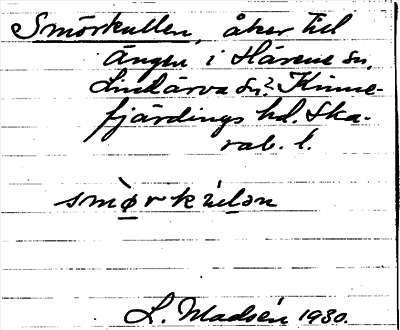 Smörkullen, åker till
Ängen i Härene sn,
Lindärva sn? Kinne-
fjärdings hd. Ska-
rab. l.
smø̀rkùlən
L. Madsén 1930.